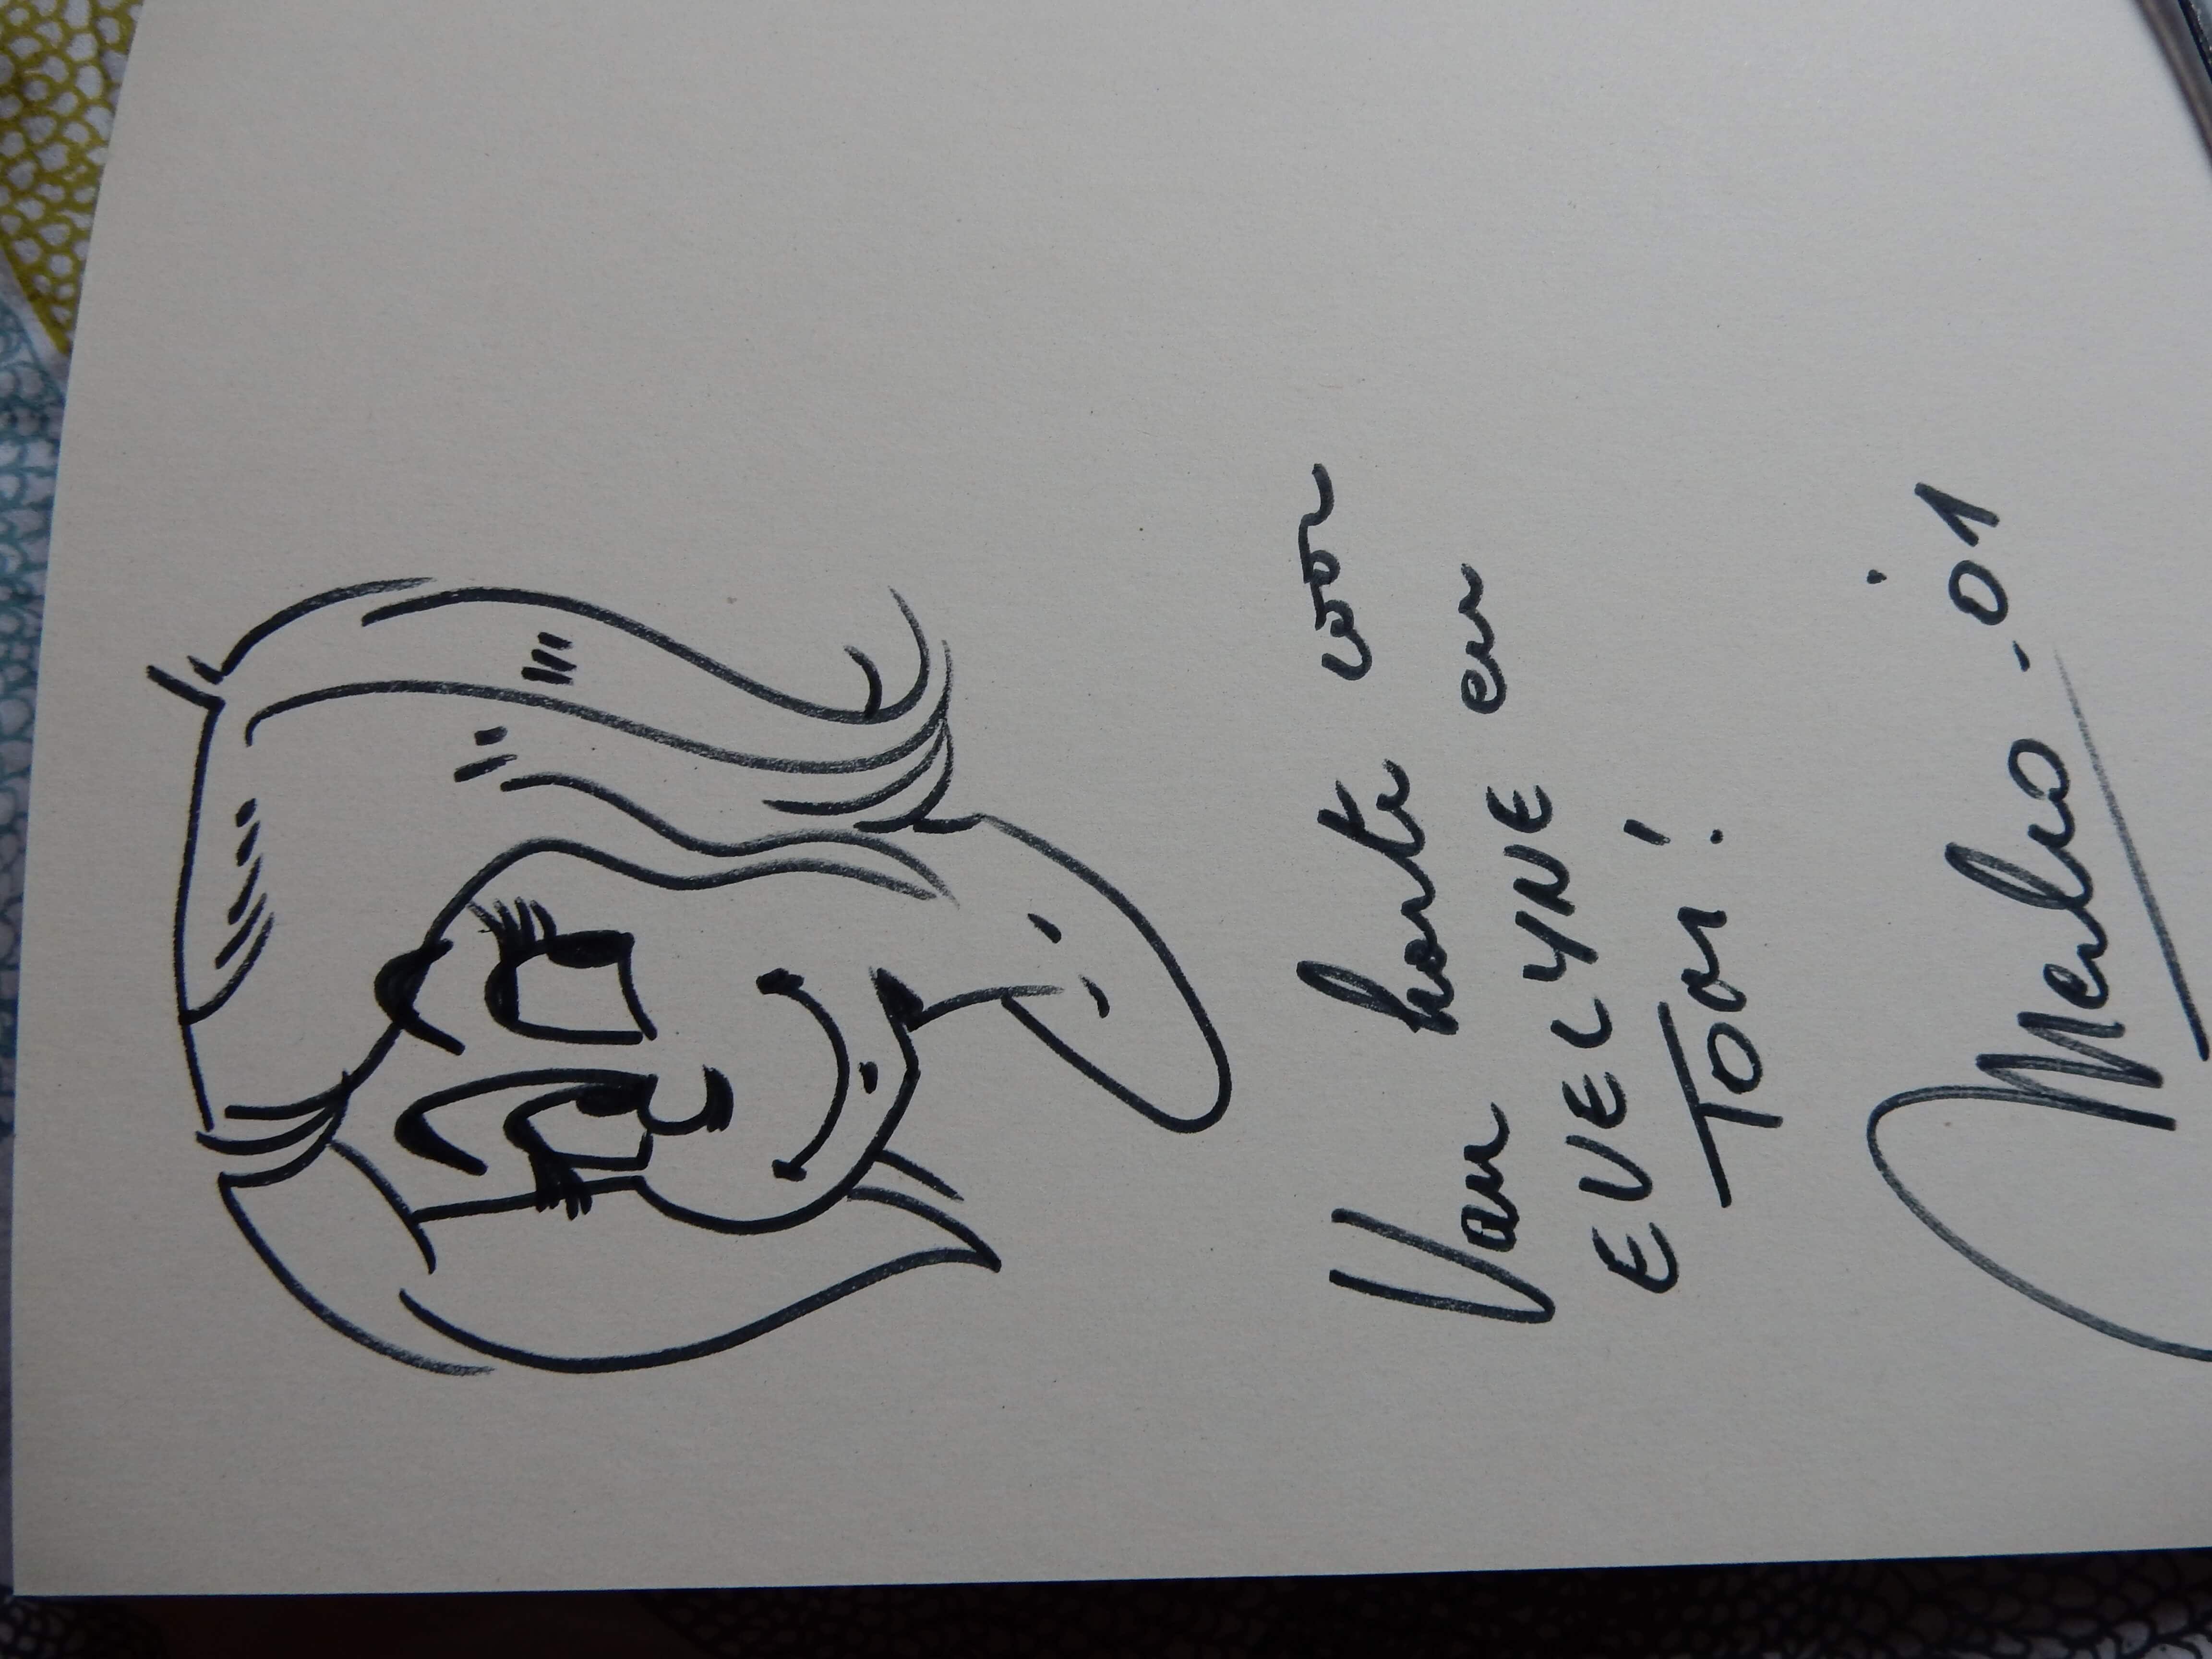 Van harte voor
EVELYNE en
TOM!
Merho - 01